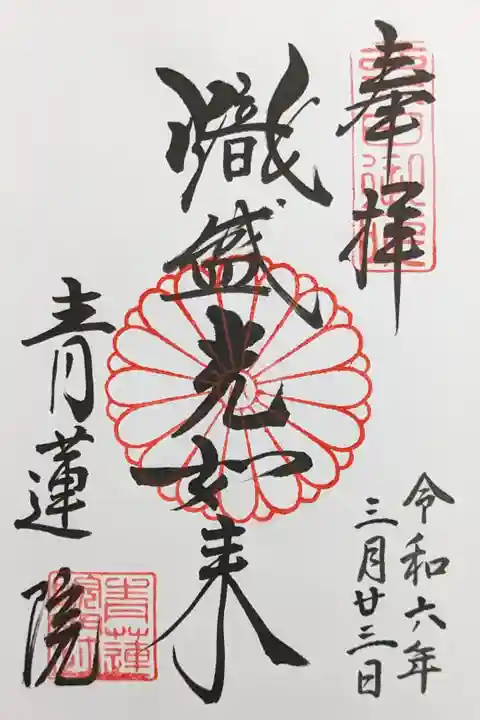 奉拝
令和六年
三月廿三日
熾盛光如来
青蓮院